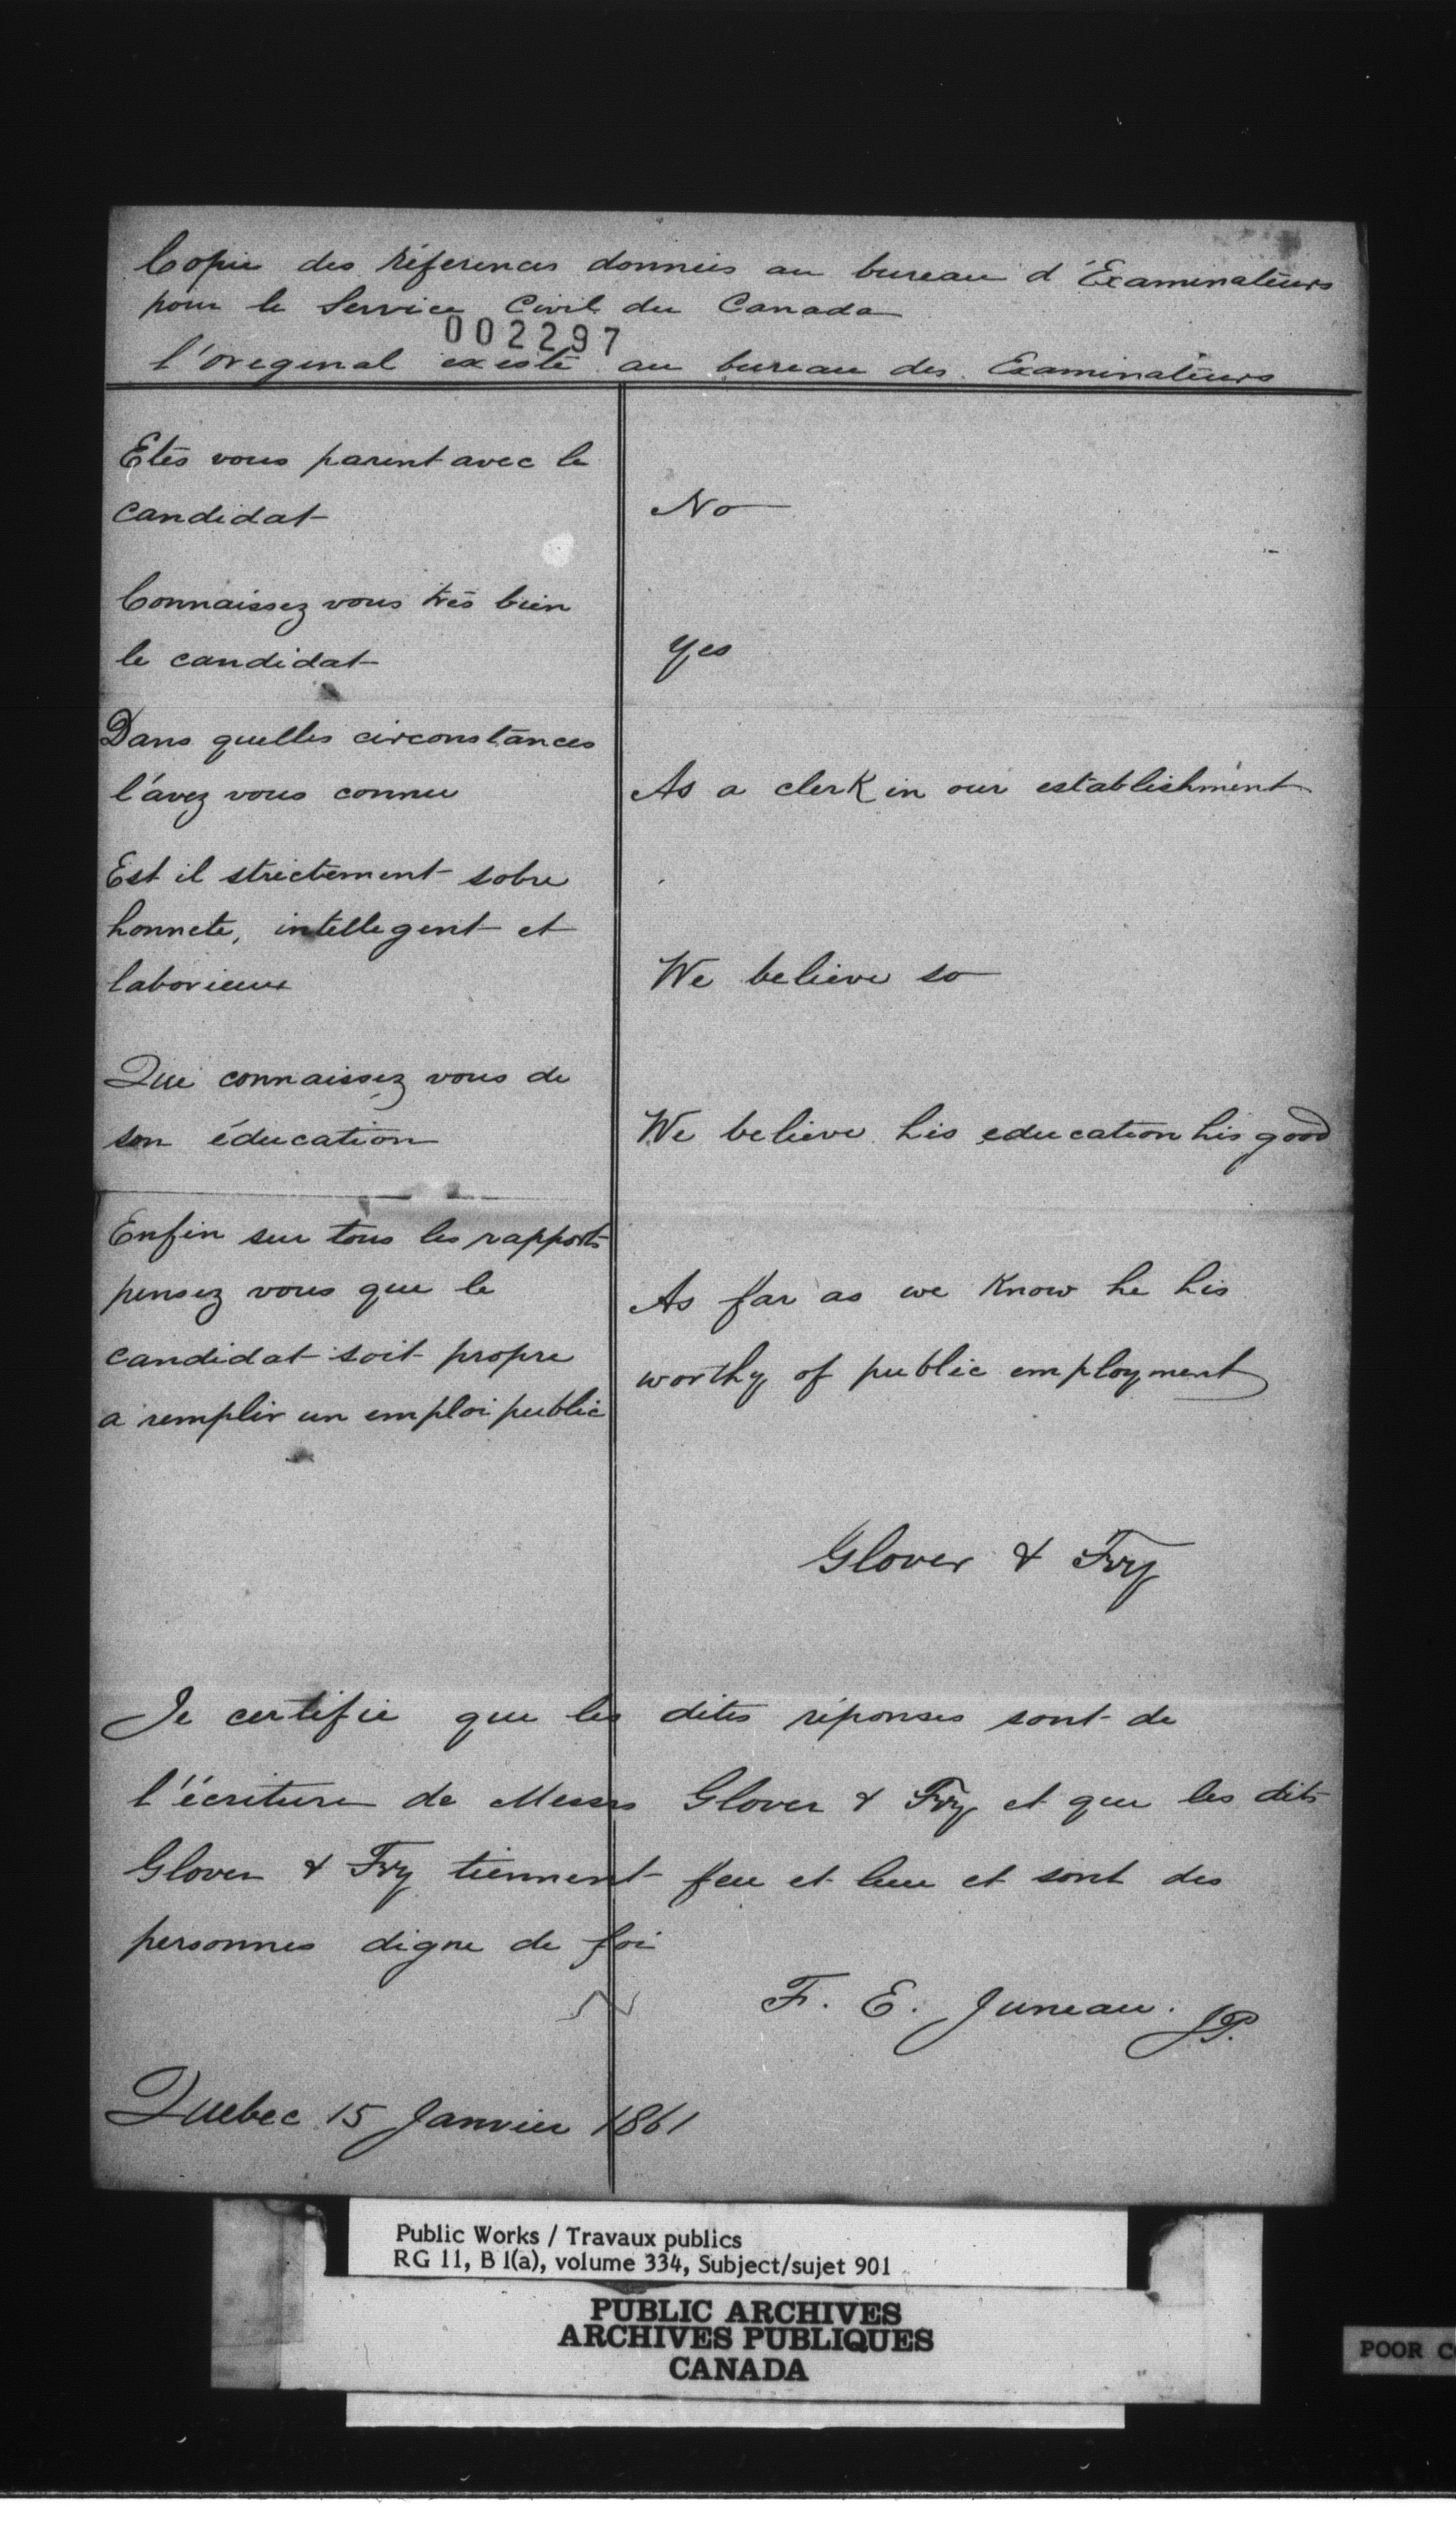 Copie des réferences données au bureau d'Examinateurs
pour le Service Civil du Canada
002297
l'original existe au bureau des Examinateurs
Etes vous parent avec le
candidat
No
Connaissez vous très bien
le candidat
Yes
Dans quelles circonstances
l'avez vous connu
As a clerk in our establishment
Est il strictement sobre
honnete, intellegent et
laborieux
We believe so
Que connaissez vous de
son éducation
We believe his education his good
Enfin sur tous les rapports
pensez vous que le
candidat soit propre
a remplir un emploi public
As far as we Know he his
worthy of public employment
Glover & Fry
Je certifie que les dites réponses sont de
l'écriture de Messrs Glover & Fry et que les dits
Glover & Fry tiennent feu et lieu et sont des
personnes digne de foi
F. E. Juneau. JP.
Quebec 15 Janvier 1861
Public Works / Travaux publics
RG 11, B 1(a), volume 334, Subject/sujet 901
PUBLIC ARCHIVES
ARCHIVES PUBLIQUES
CANADA
POOR